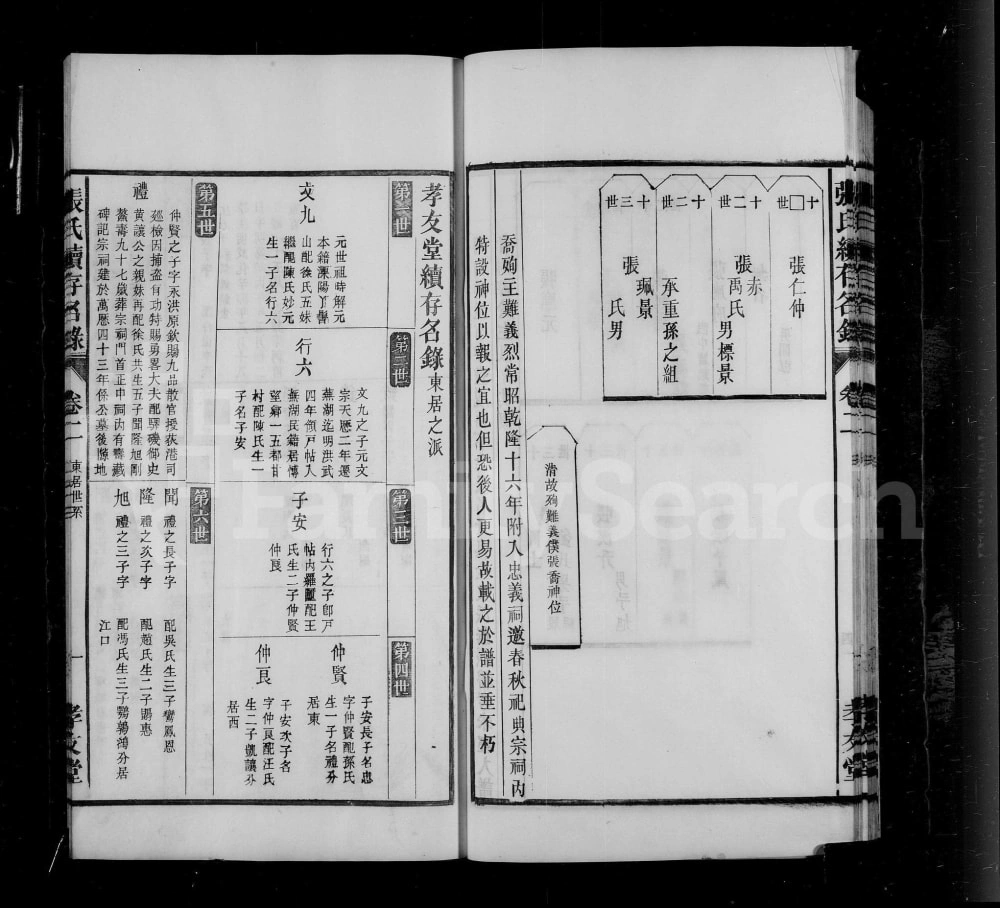 張氏續存名錄
卷二
孝友堂
十□世
張仁仲
十二世
張赤
禹氏
男標景
十二世
承重孫之組
十三世
張珮景
氏男
清故殉難義僕張喬神位
喬殉主難義烈常昭乾隆十六年附入忠義祠邀春秋祀典宗祠內
特設神位以報之宜也但恐後人更易故載之於譜並垂不朽
孝友堂續存名錄東居之派
第一世
文九
元世祖時解元
本籍溧陽丫髻
山配徐氏五妹
繼配陳氏妙元
生一子名行六
第二世
行六
文九之子元文
宗天曆二年遷
蕪湖迄明洪武
四年領戸帖入
蕪湖民籍居慱
望鄉一五都甘
村配陳氏生一
子名子安
第三世
子安
行六之子卽戸
帖內羅配王
氏生二子仲賢
仲良
第四世
仲賢
子安長子名忠
字仲賢配孫氏
生一子名禮分
居東
仲良
子安次子名
字仲良配汪氏
生二子凱讓分
居西
第五世
禮
仲賢之子字永洪原欽賜九品散官授荻港司
廵檢因捕盜有功特賜勇畧大夫配驛磯御史
黃讓公之親妹再配徐氏共生五子聞隆旭剛
鰲壽九十七歲葬宗祠門首正中祠内有舊藏
碑記宗祠建於萬歷四十三年係公墓後隙地
第六世
聞
禮之長子字
配吳氏生三子鸞鳳恩
隆
禮之次子字
配趙氏生二子鵾惠
旭
禮之三子字
配馮氏生三子鸚鶉鴻分居
江口
張氏續存名錄
卷二
東居世系
一
孝友堂
FamilySearch